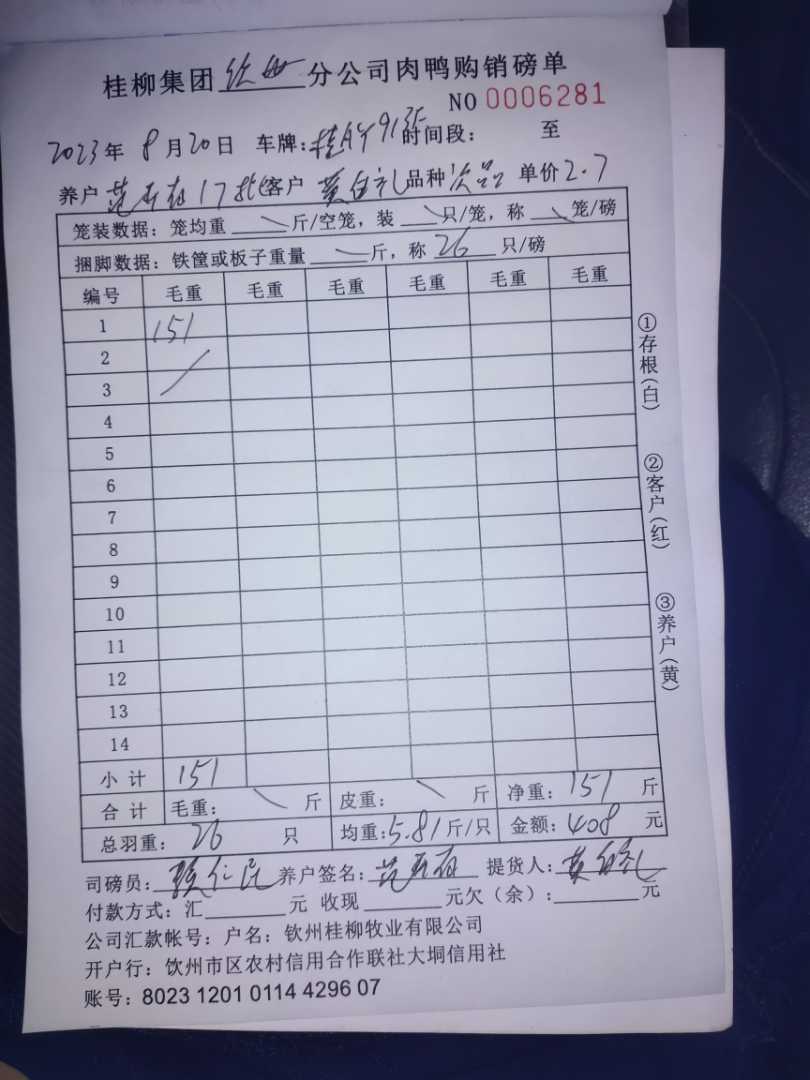 桂柳集团钦州分公司肉鸭购销磅单
NO 0006281
2023年8月20日 车牌:桂 时间段: 至
养户 17批 客户 黄 礼 品种 次品 单价 2.7
笼装数据: 笼均重 斤/空笼, 装 只/笼, 称 笼/磅
捆脚数据: 铁筐或板子重量 斤, 称 26 只/磅
编号 毛重 毛重 毛重 毛重 毛重 毛重
1 151
2
3
4
5
6
7
8
9
10
11
12
13
14
小计 151
合计 毛重: 斤 皮重: 斤 净重: 151 斤
总羽重: 26 只 均重: 5.81 斤/只 金额: 408 元
司磅员: 仁民 养户签名: 提货人: 黄 礼
付款方式: 汇 元 收现 元欠(余): 元
公司汇款帐号: 户名: 钦州桂柳牧业有限公司
开户行: 饮州市区农村信用合作联社大垌信用社
账号: 8023 1201 0114 4296 07
①存根(白)
②客户(红)
③养户(黄)